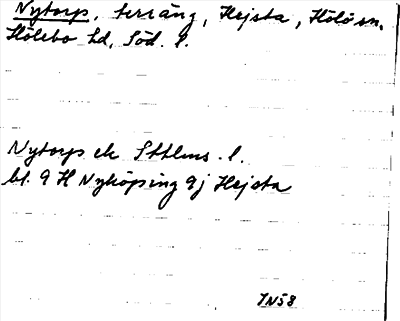 Nytorp, terräng, Hejsta, Hölö sn,
Hölebo hd, Söd. l.
Nytorp ek Sthlms. l.
bl. 9 H Nyköping 9j Hejsta
IN58